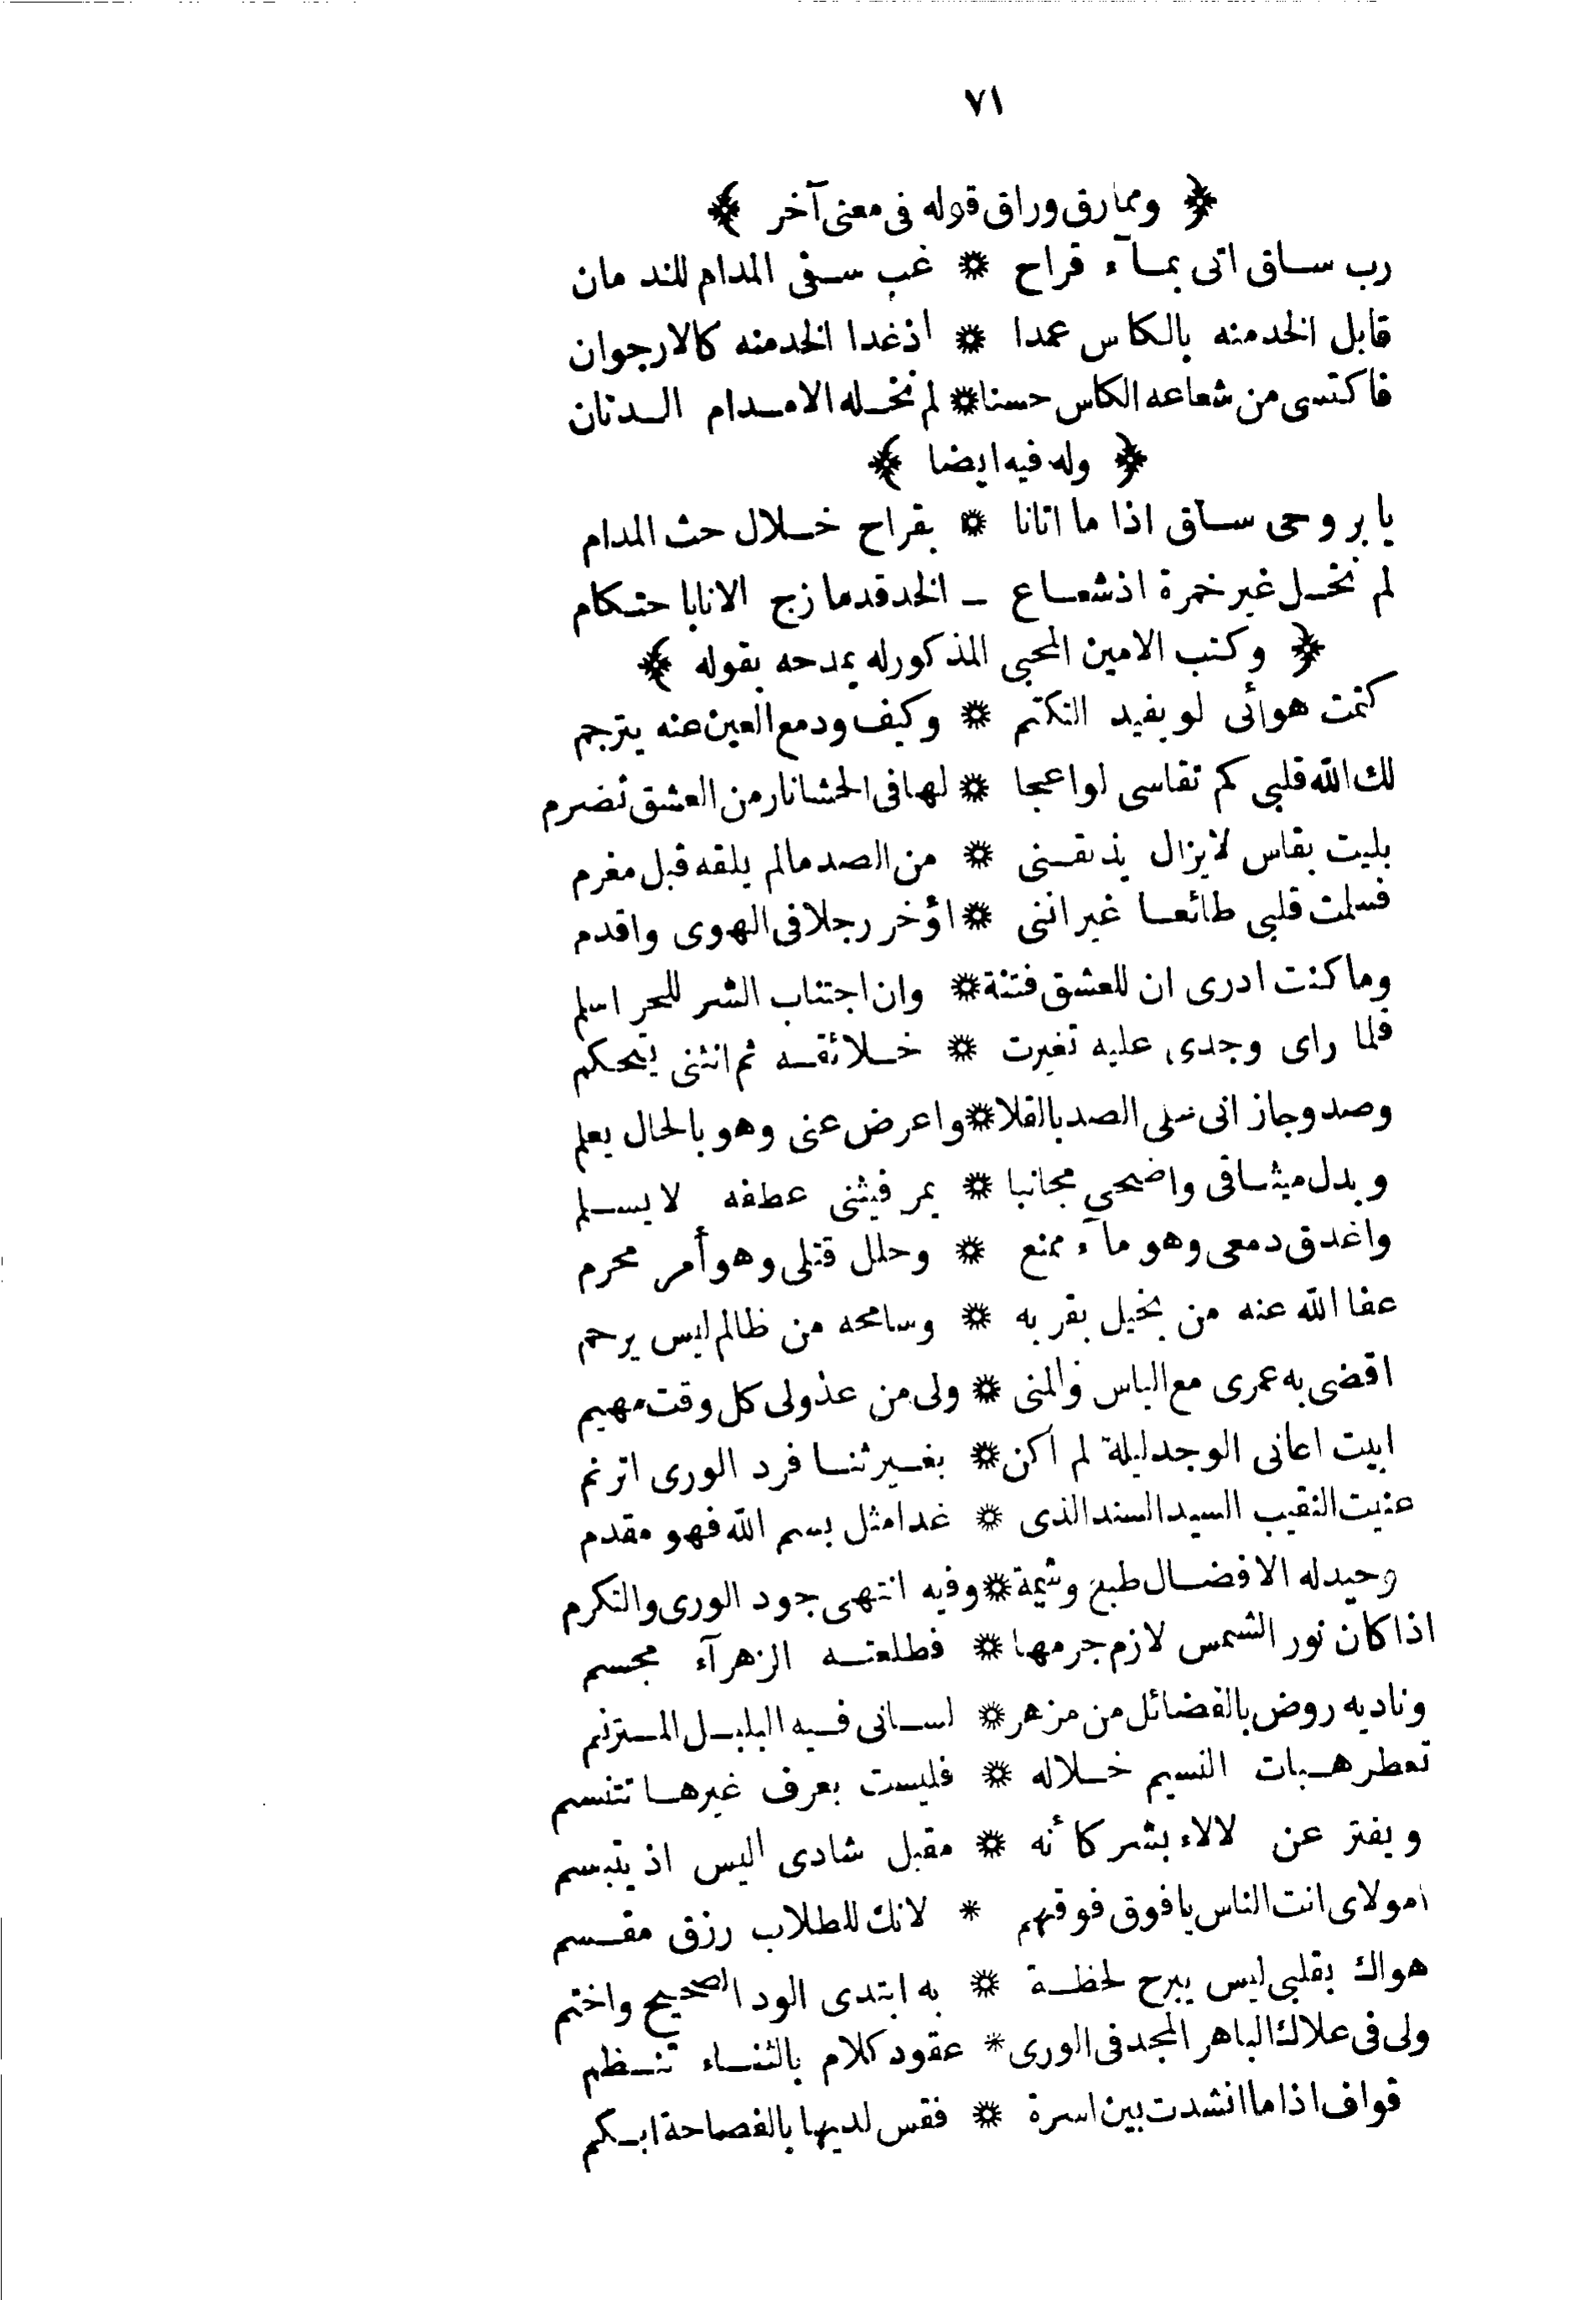 ٧١
﴿ ومما رق وراق قوله فى معنى آخر ﴾
رب ساق اتى بمآء قراح * غب سقى المدام للندمان
قابل الخد منه بالكاس عمدا * اذ غدا الخد منه كالارجوان
فاكتسى من شعاعه الكاس حسنا * لم نخله الا مدام الدنان
﴿ وله فيه ايضا ﴾
يا بروحى ساق اذا ما اتانا * بقراح خلال حث المدام
لم نخل غير خمرة اذ شعاع – الخد قد مازج الانا باحتكام
﴿ وكتب الامين المحبى المذكور له يمدحه بقوله ﴾
كتمت هوائى لو يفيد التكتم * وكيف ودمع العين عنه يترجم
لك الله قلبى كم تقاسى لواعجا * لها فى الحشا نار من العشق تضرم
بليت بقاس لا يزال يذيقنى * من الصد مالم يلقه قبل مغرم
فسلمت قلبى طائعا غير اننى * اؤخر رجلا فى الهوى واقدم
وما كنت ادرى ان للعشق فتنة * وان اجتناب الشر للحر اسلم
فلما راى وجدى عليه تغيرت * خلائقه ثم انثنى يتحكم
وصد وجازانى على الصد بالقلا * واعرض عنى وهو بالحال يعلم
وبدل ميثاقى واضحى مجانبا * يمر فيثنى عطفه لا يسلم
واغدق دمعى وهو مآء ممنع * وحلل قتلى وهو أمر محرم
عفا الله عنه من بخيل بقربه * وسامحه من ظالم ليس يرحم
اقضى به عمرى مع الياس والمنى * ولى من عذولى كل وقت مهيم
ابيت اعانى الوجد ليلة لم اكن * بغير ثنا فرد الورى اترنم
عنيت النقيب السيد السند الذى * غدا مثل بسم الله فهو مقدم
وحيد له الافضال طبع وشيمة * وفيه انتهى جود الورى والتكرم
اذا كان نور الشمس لازم جرمها * فطلعته الزهرآء مجسم
وناديه روض بالفضائل من مزهر * لسانى فيه البلبل المترنم
تعطر هبات النسيم خلاله * فليست بعرف غيرها تتنسم
ويفتر عن لالاء بشر كأنه * مقبل شادى اليس اذ يتبسم
امولاى انت الناس يا فوق فوقهم * لانك للطلاب رزق مقسم
هواك بقلبى ليس يبرح لحظة * به ابتدى الود الصحيح واختم
ولى فى علاك الباهر المجد فى الورى * عقود كلام بالثناء تنظم
قواف اذا ما انشدت بين اسرة * فقس لديها بالفصاحة ابكم